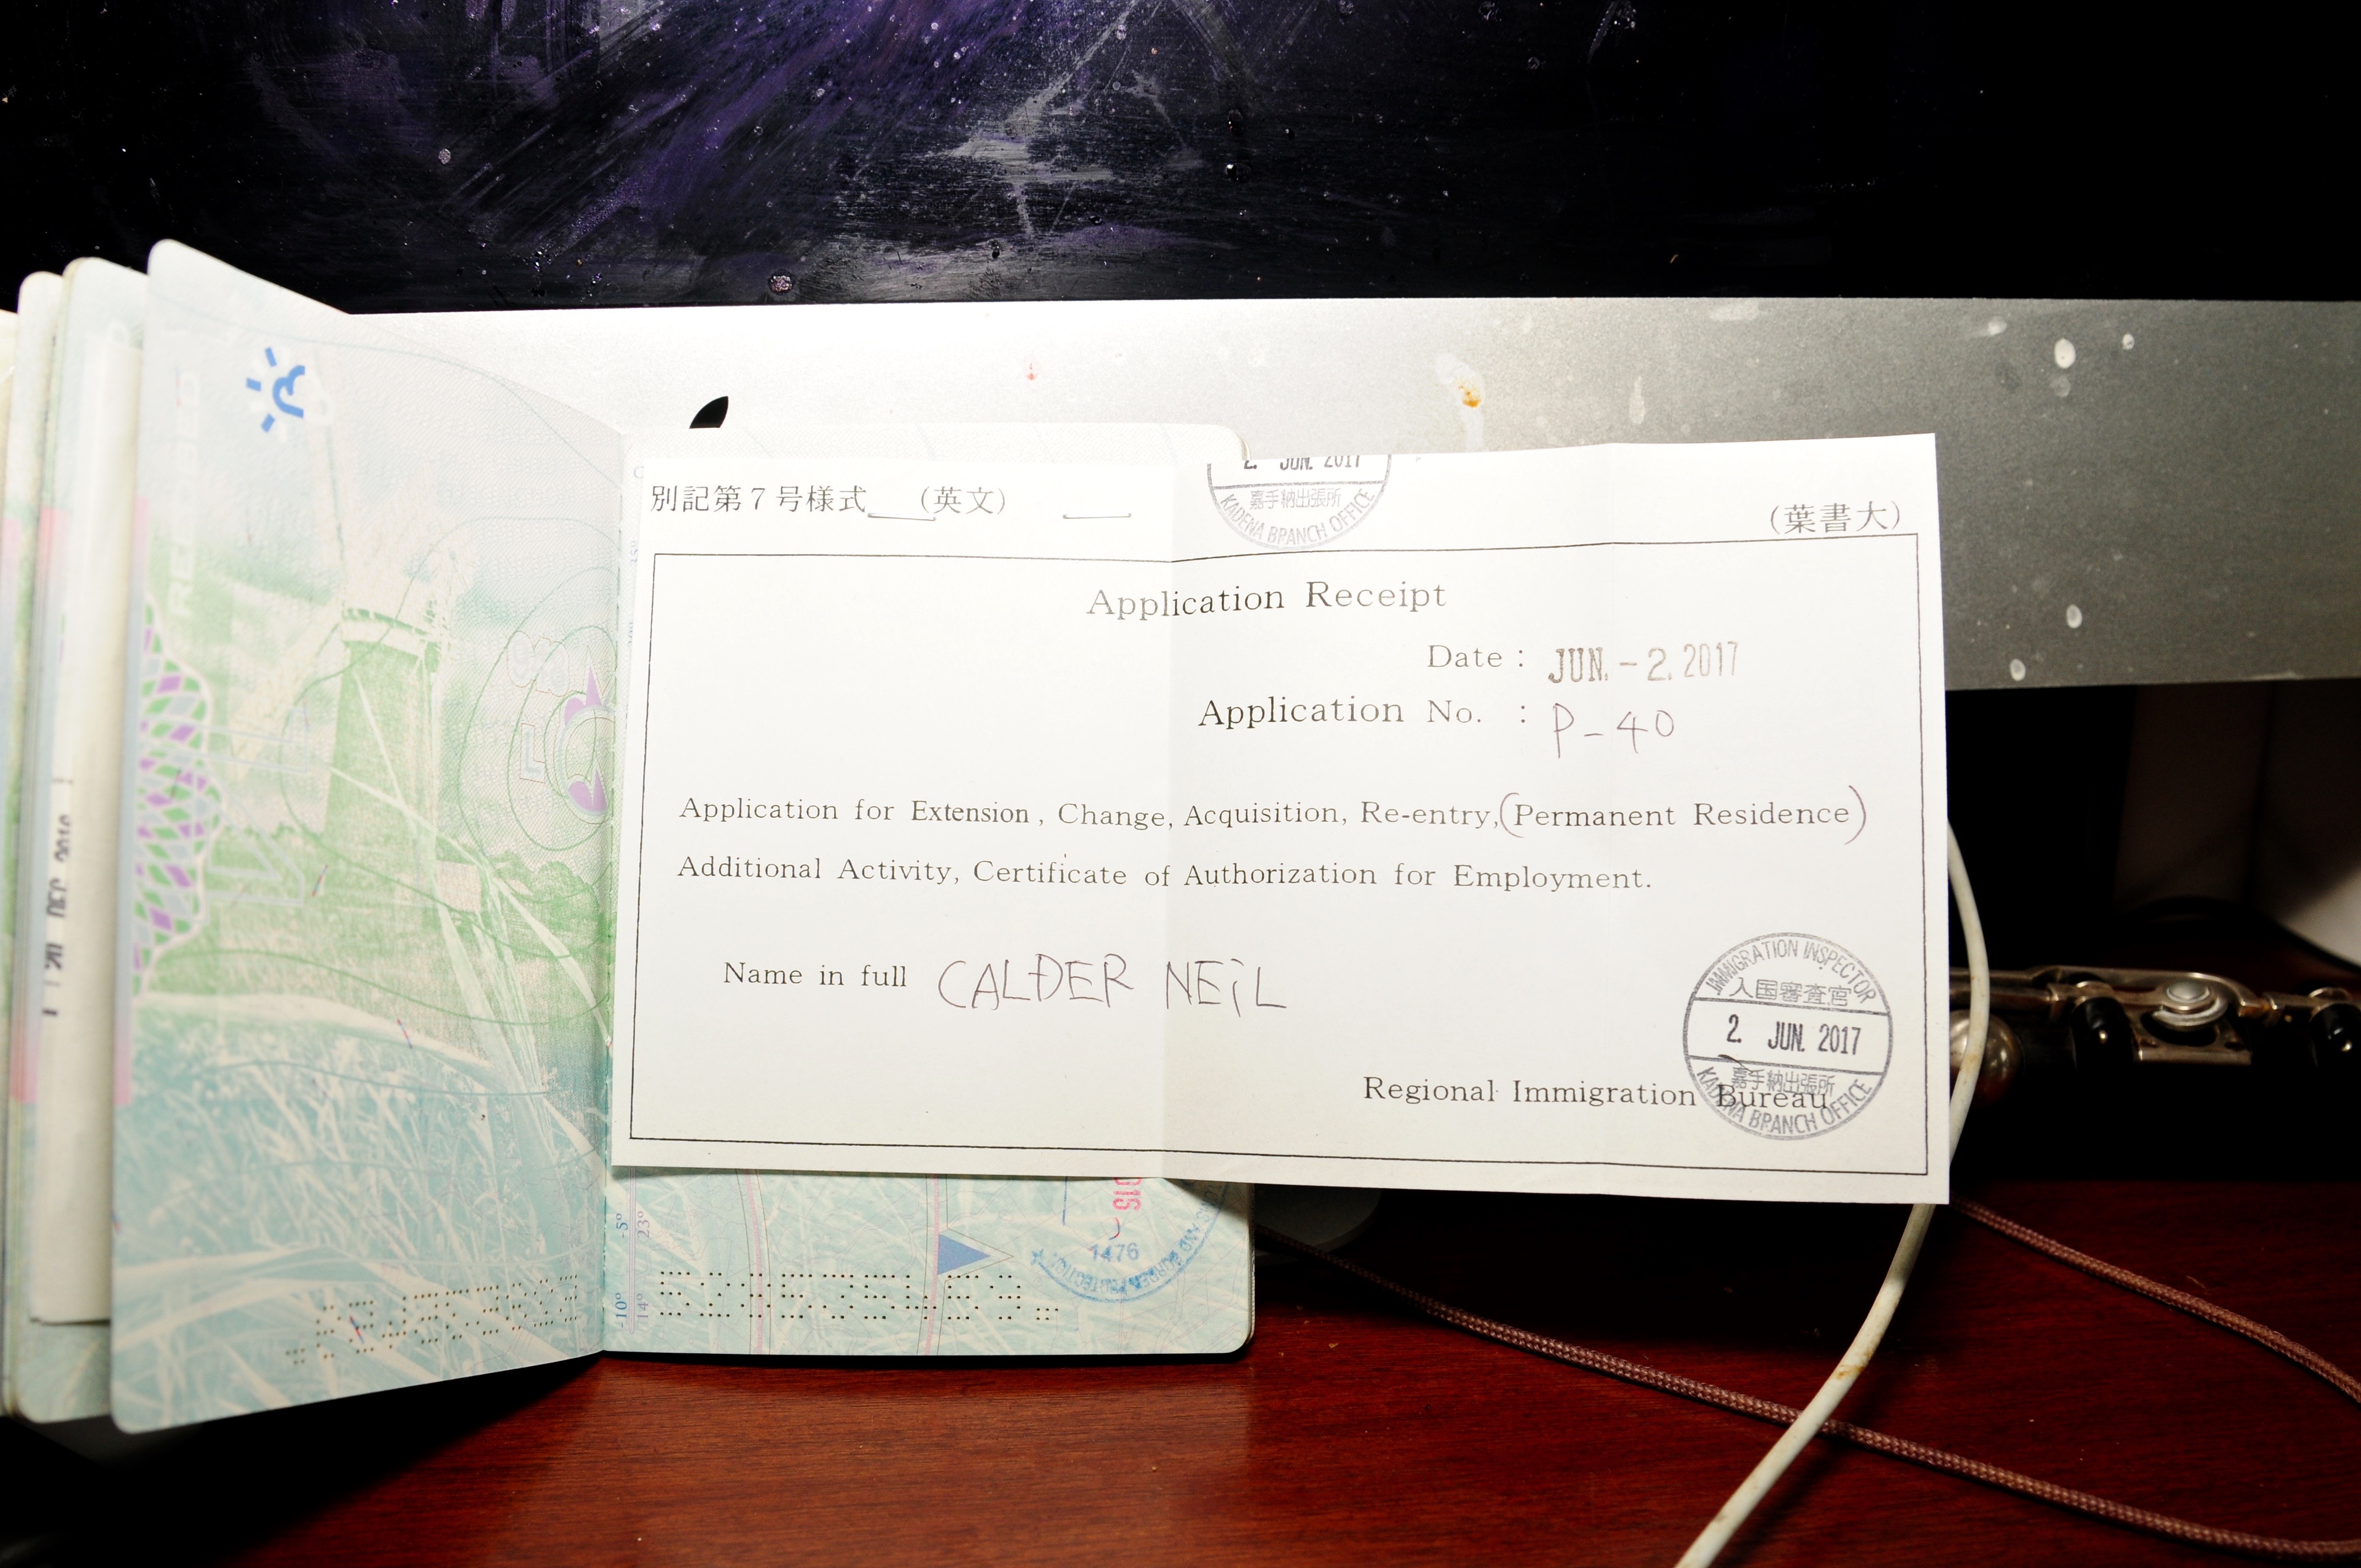 別記第7号様式 (英文)
2. JUN. 2017
嘉手納出張所
KADENA BRANCH OFFICE
(葉書大)
Application Receipt
Date : JUN. - 2. 2017
Application No. : P-40
Application for Extension, Change, Acquisition, Re-entry, (Permanent Residence)
Additional Activity, Certificate of Authorization for Employment.
Name in full CALDER NEIL
IMMIGRATION INSPECTOR
入国審査官
2. JUN. 2017
嘉手納出張所
KADENA BRANCH OFFICE
Regional Immigration Bureau
1476
-5°
23°
-10°
14°